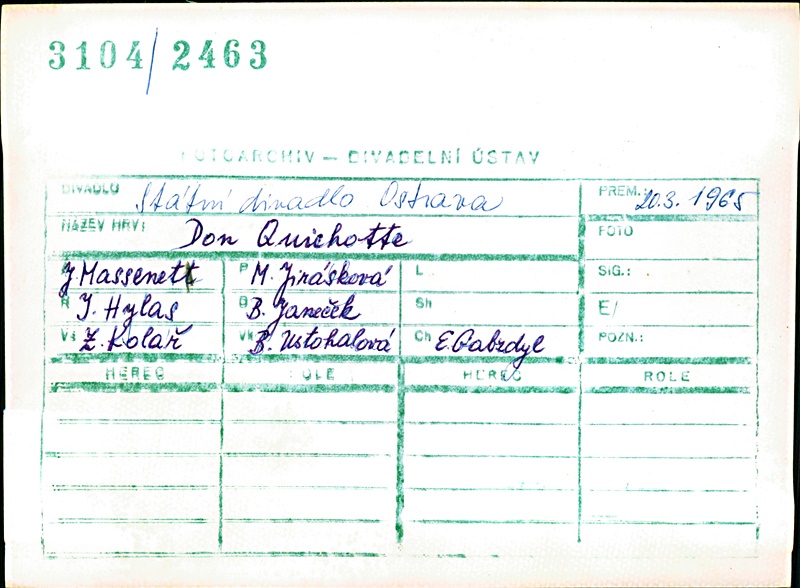 3104/2463
FOTOARCHIV — DIVADELNÍ ÚSTAV
DIVADLO Státní divadlo Ostrava PREM.: 20.3. 1965
NÁZEV HRY: Don Quichotte FOTO
J Massenett P M. Jirásková L SIG.:
R I. Hylas D B. Janeček Sh E/
Vs Z. Kolář Vk B. Ustohalová Ch E. Gabzdyl POZN.:
HEREC ROLE HEREC ROLE